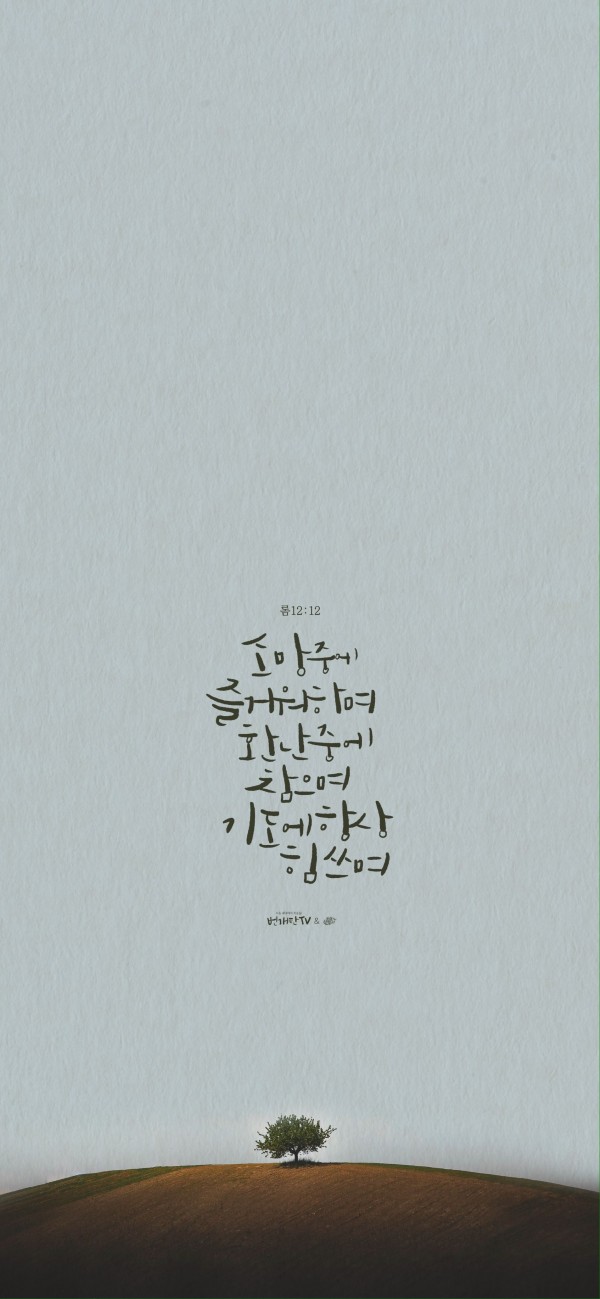 롬12:12
소망중에
즐거워하며
환난중에
참으며
기도에항상
힘쓰며
번개탄TV &